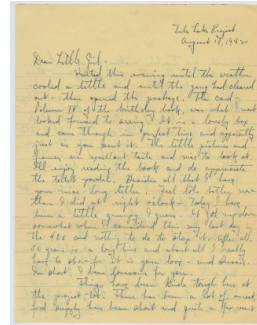 Tule Lake Project
August 18, 1942
Dear Little Girl -
Waited this evening until the weather
cooled a little and until the gang had cleared
out - then opened the package. The card -
Volume IV of the birthday book, was what I most
looked forward to seeing. It is a lovely box
and came through in perfect time and apparently
just as you sent it. The little pictures and
are excellent taste and nice to look at.
I'll enjoy reading the book and do appreciate
the . Besides all that I have
your nice long letter. Feel lots better now
than I did at eight o'clock - Today I have
been a little grumpy I guess. It got me down
somewhat when I considered this my last day in
the 40s and nothing to do to stop it. After all
is a long time and about all I really
have to show for it is your love - and
In short, I been for you.
Things have been kinda tough here at
the project too. There has been a lot of unrest,
food supply has been short and quite a few